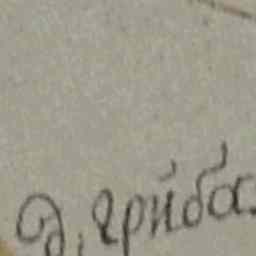 д. Гриба.